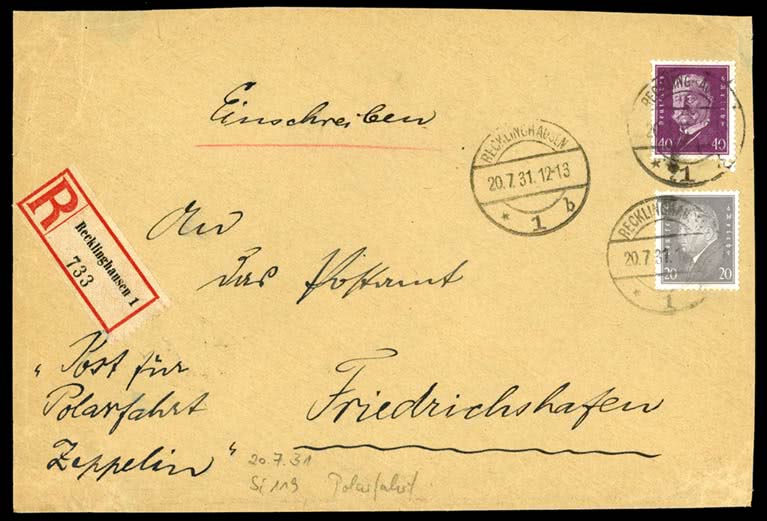 Einschreiben
RECKLINGHAUSEN
20.7.31.12-13
* 1 b
RECKLINGHAU
* 1
40 40
RECKLINGHAU
20.7.31.1
* 1
20 20
R
Recklinghausen 1
733
An
das Postamt
Friedrichshafen
"Post für
Polarfahrt
Zeppelin"
20.7.31
Si 119 Polarfahrt